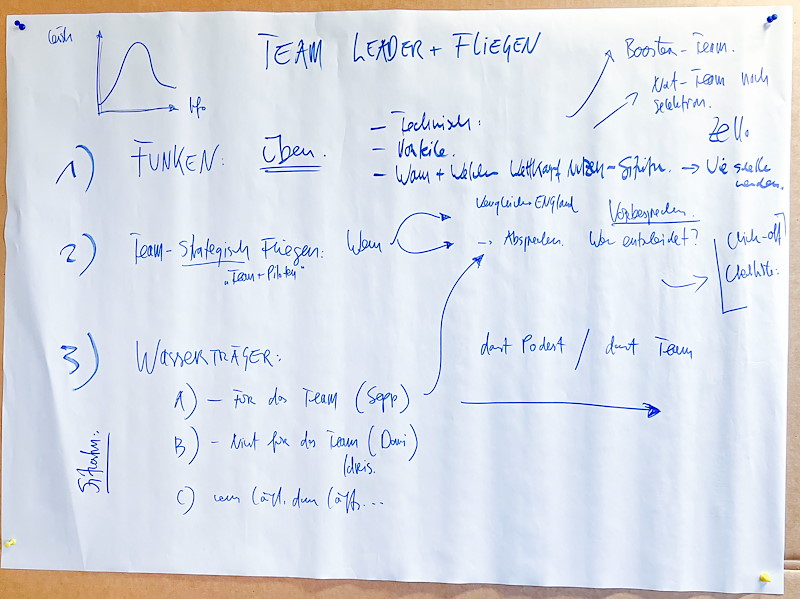 TEAM LEADER + FLIEGEN
Info
Booster-Team.
Nat-Team nach
Selektion.
Zell.
1) FUNKEN: Üben.
– Technisch:
– Vorteile.
– Wann + Welchen Wettkampf → Wie
werden.
Vergleich ENGLAND
Vorbesprechen.
2) Team-Strategisch Fliegen: Wann
"Team + Piloten"
→ Absprechen. Wer entscheidet?
Checkliste:
3) WASSERTRÄGER:
dant Podest / dant Team
A) – Für das Team (Sepp)
B) – Nicht für das Team (Dani)
C) wenn läuft, dann läufts...
Situation: